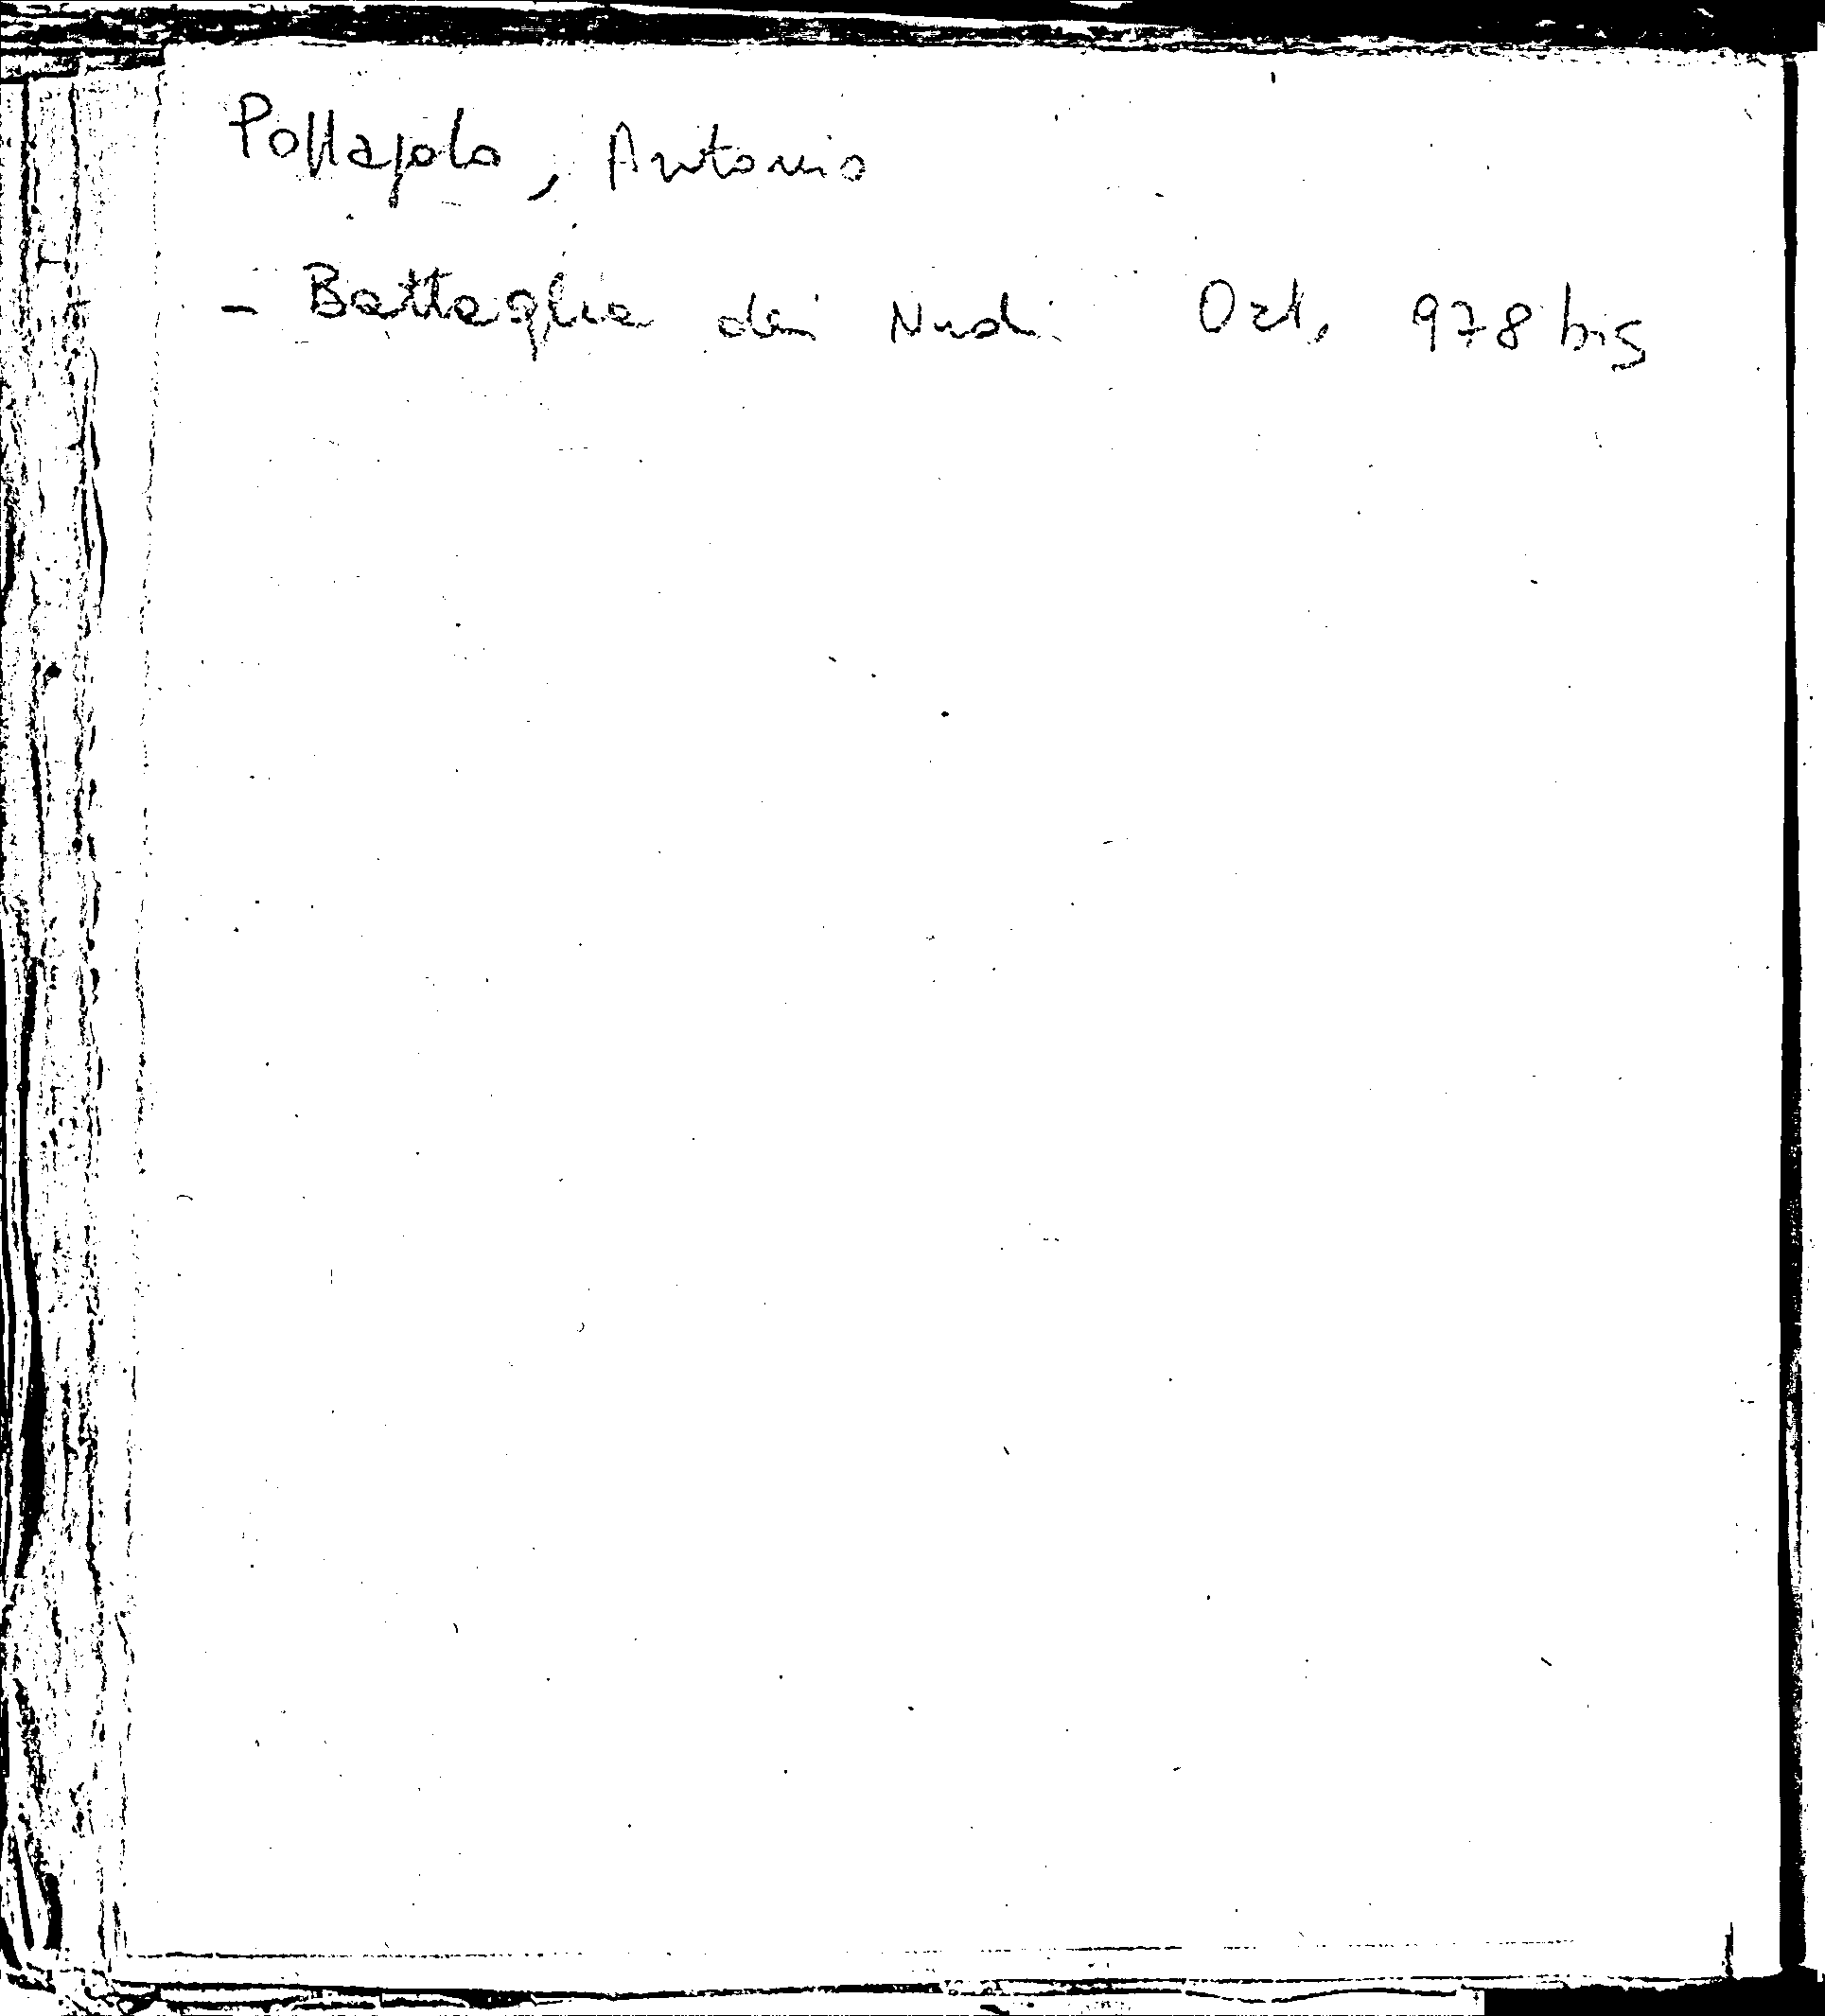 Pollajolo, Antonio
- Battaglia dei Nudi Ozt. 978 bis